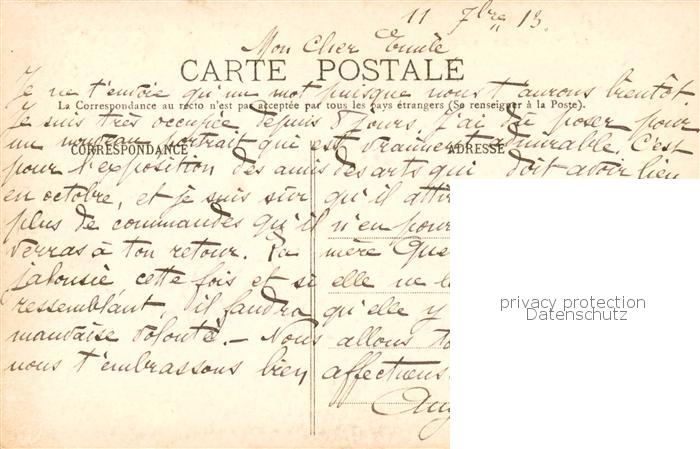 11 7bre 13.
Mon cher Emile
CARTE POSTALE
Je ne t'envoie qu'un mot puisque nous t'aurons bientôt.
La Correspondance au recto n'est pas acceptée par tous les pays étrangers (Se renseigner à la Poste).
Je suis très occupée depuis 8 jours. J'ai dû poser pour
un nouveau portrait qui est vraiment admirable. C'est
CORRESPONDANCE
ADRESSE
pour l'exposition des amis des arts qui doit avoir lieu
en octobre, et je suis sûr qu'il
plus de commandes qu'il n'en
verras à ton retour. Ta mère
jalousie cette fois et si elle ne
ressemblant, il faudra qu'elle y
mauvaise volonté. — Nous allons
nous t'embrassons bien
privacy protection
Datenschutz